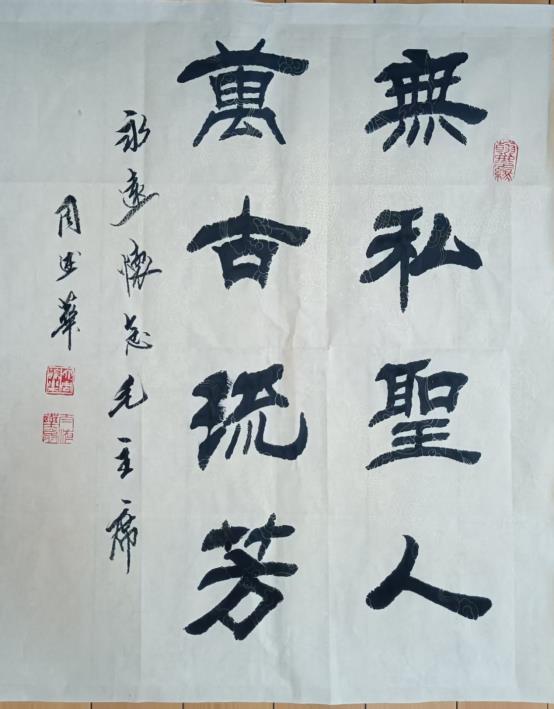 無私聖人
萬古琉芳
永遠懷念毛主席
周華